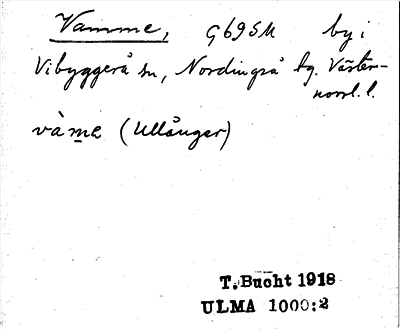 Vamme, G69SM by i
Vibyggerå sn, Nordingrå tg. Väster-
norrl. l.
vàme (Ullånger)
T. Bucht 1918
ULMA 1000:2